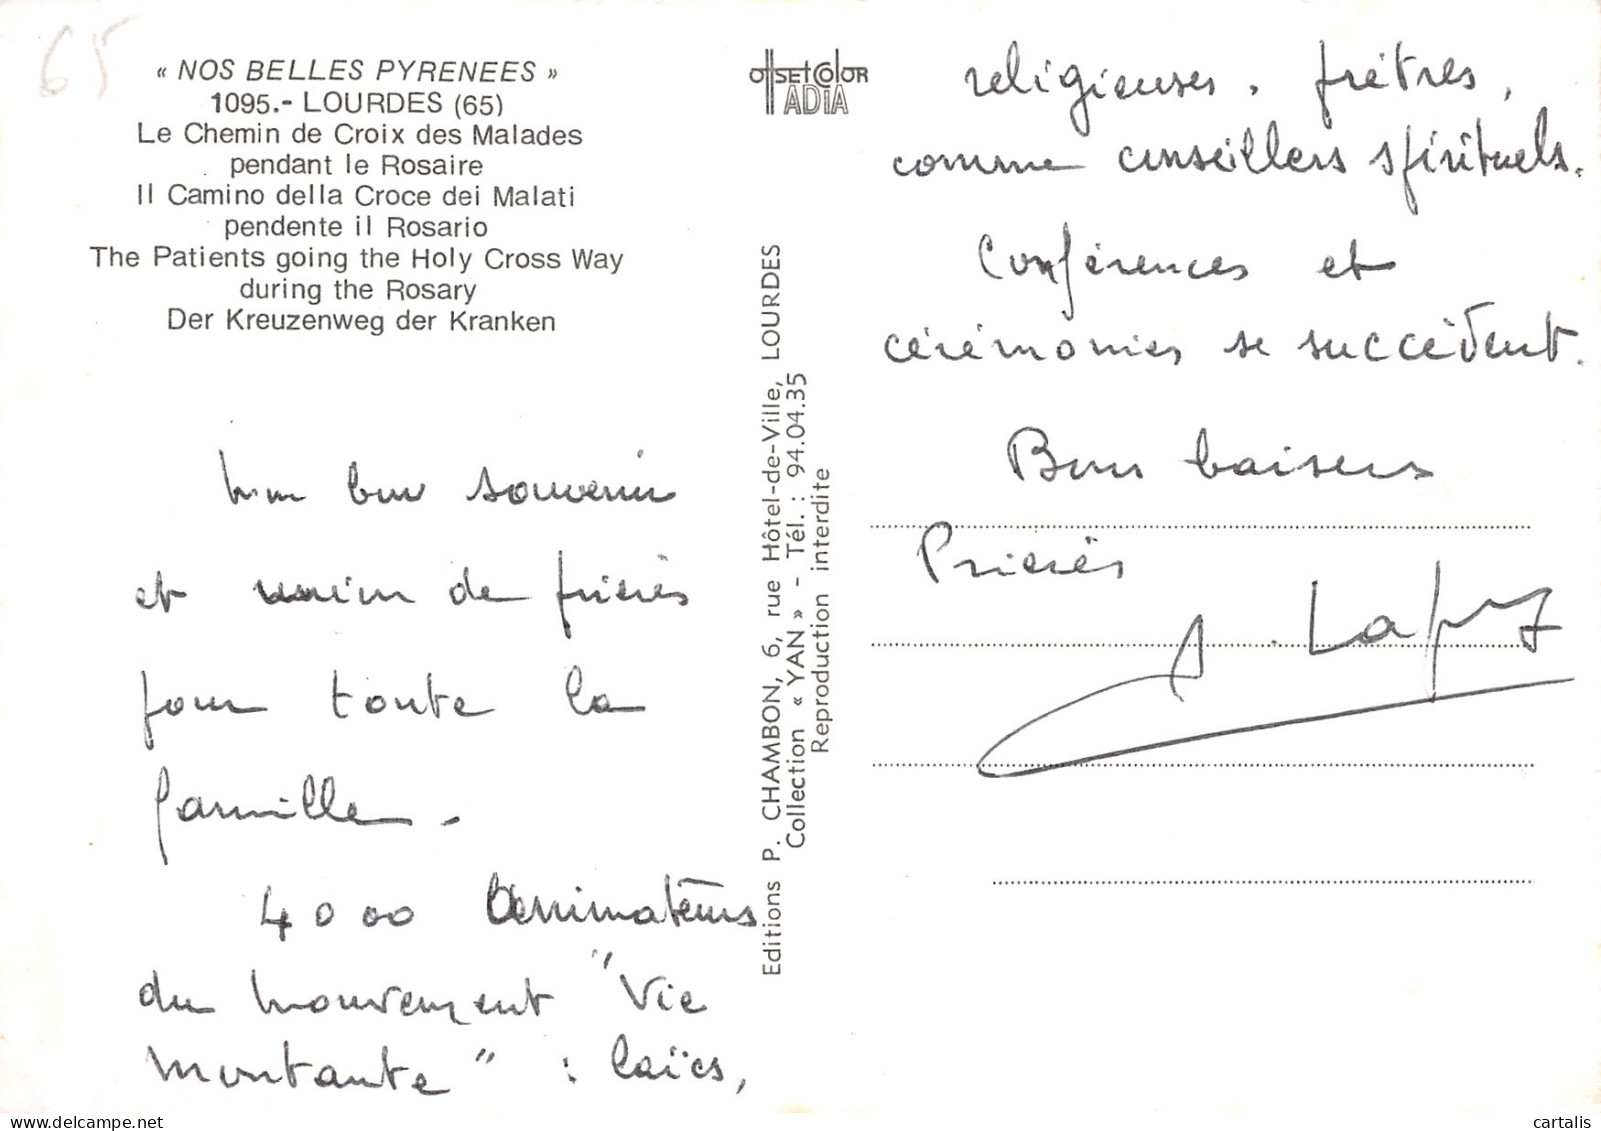 65
« NOS BELLES PYRENEES »
1095.- LOURDES (65)
Le Chemin de Croix des Malades
pendant le Rosaire
Il Camino della Croce dei Malati
pendente il Rosario
The Patients going the Holy Cross Way
during the Rosary
Der Kreuzenweg der Kranken
bon souvenir
et union de prières
pour toute la
famille.
4000 Animateurs
du mouvement "Vie
montante" : laïcs,
OFFSET COLOR
ADIA
Editions P. CHAMBON, 6, rue Hôtel-de-Ville, LOURDES
Collection « YAN » - Tél. : 94.04.35
Reproduction interdite
religieuses, prêtres,
comme conseillers spirituels.
Conférences et
cérémonies se succèdent.
Bons baisers
Prières
cartalis
delcampe.net